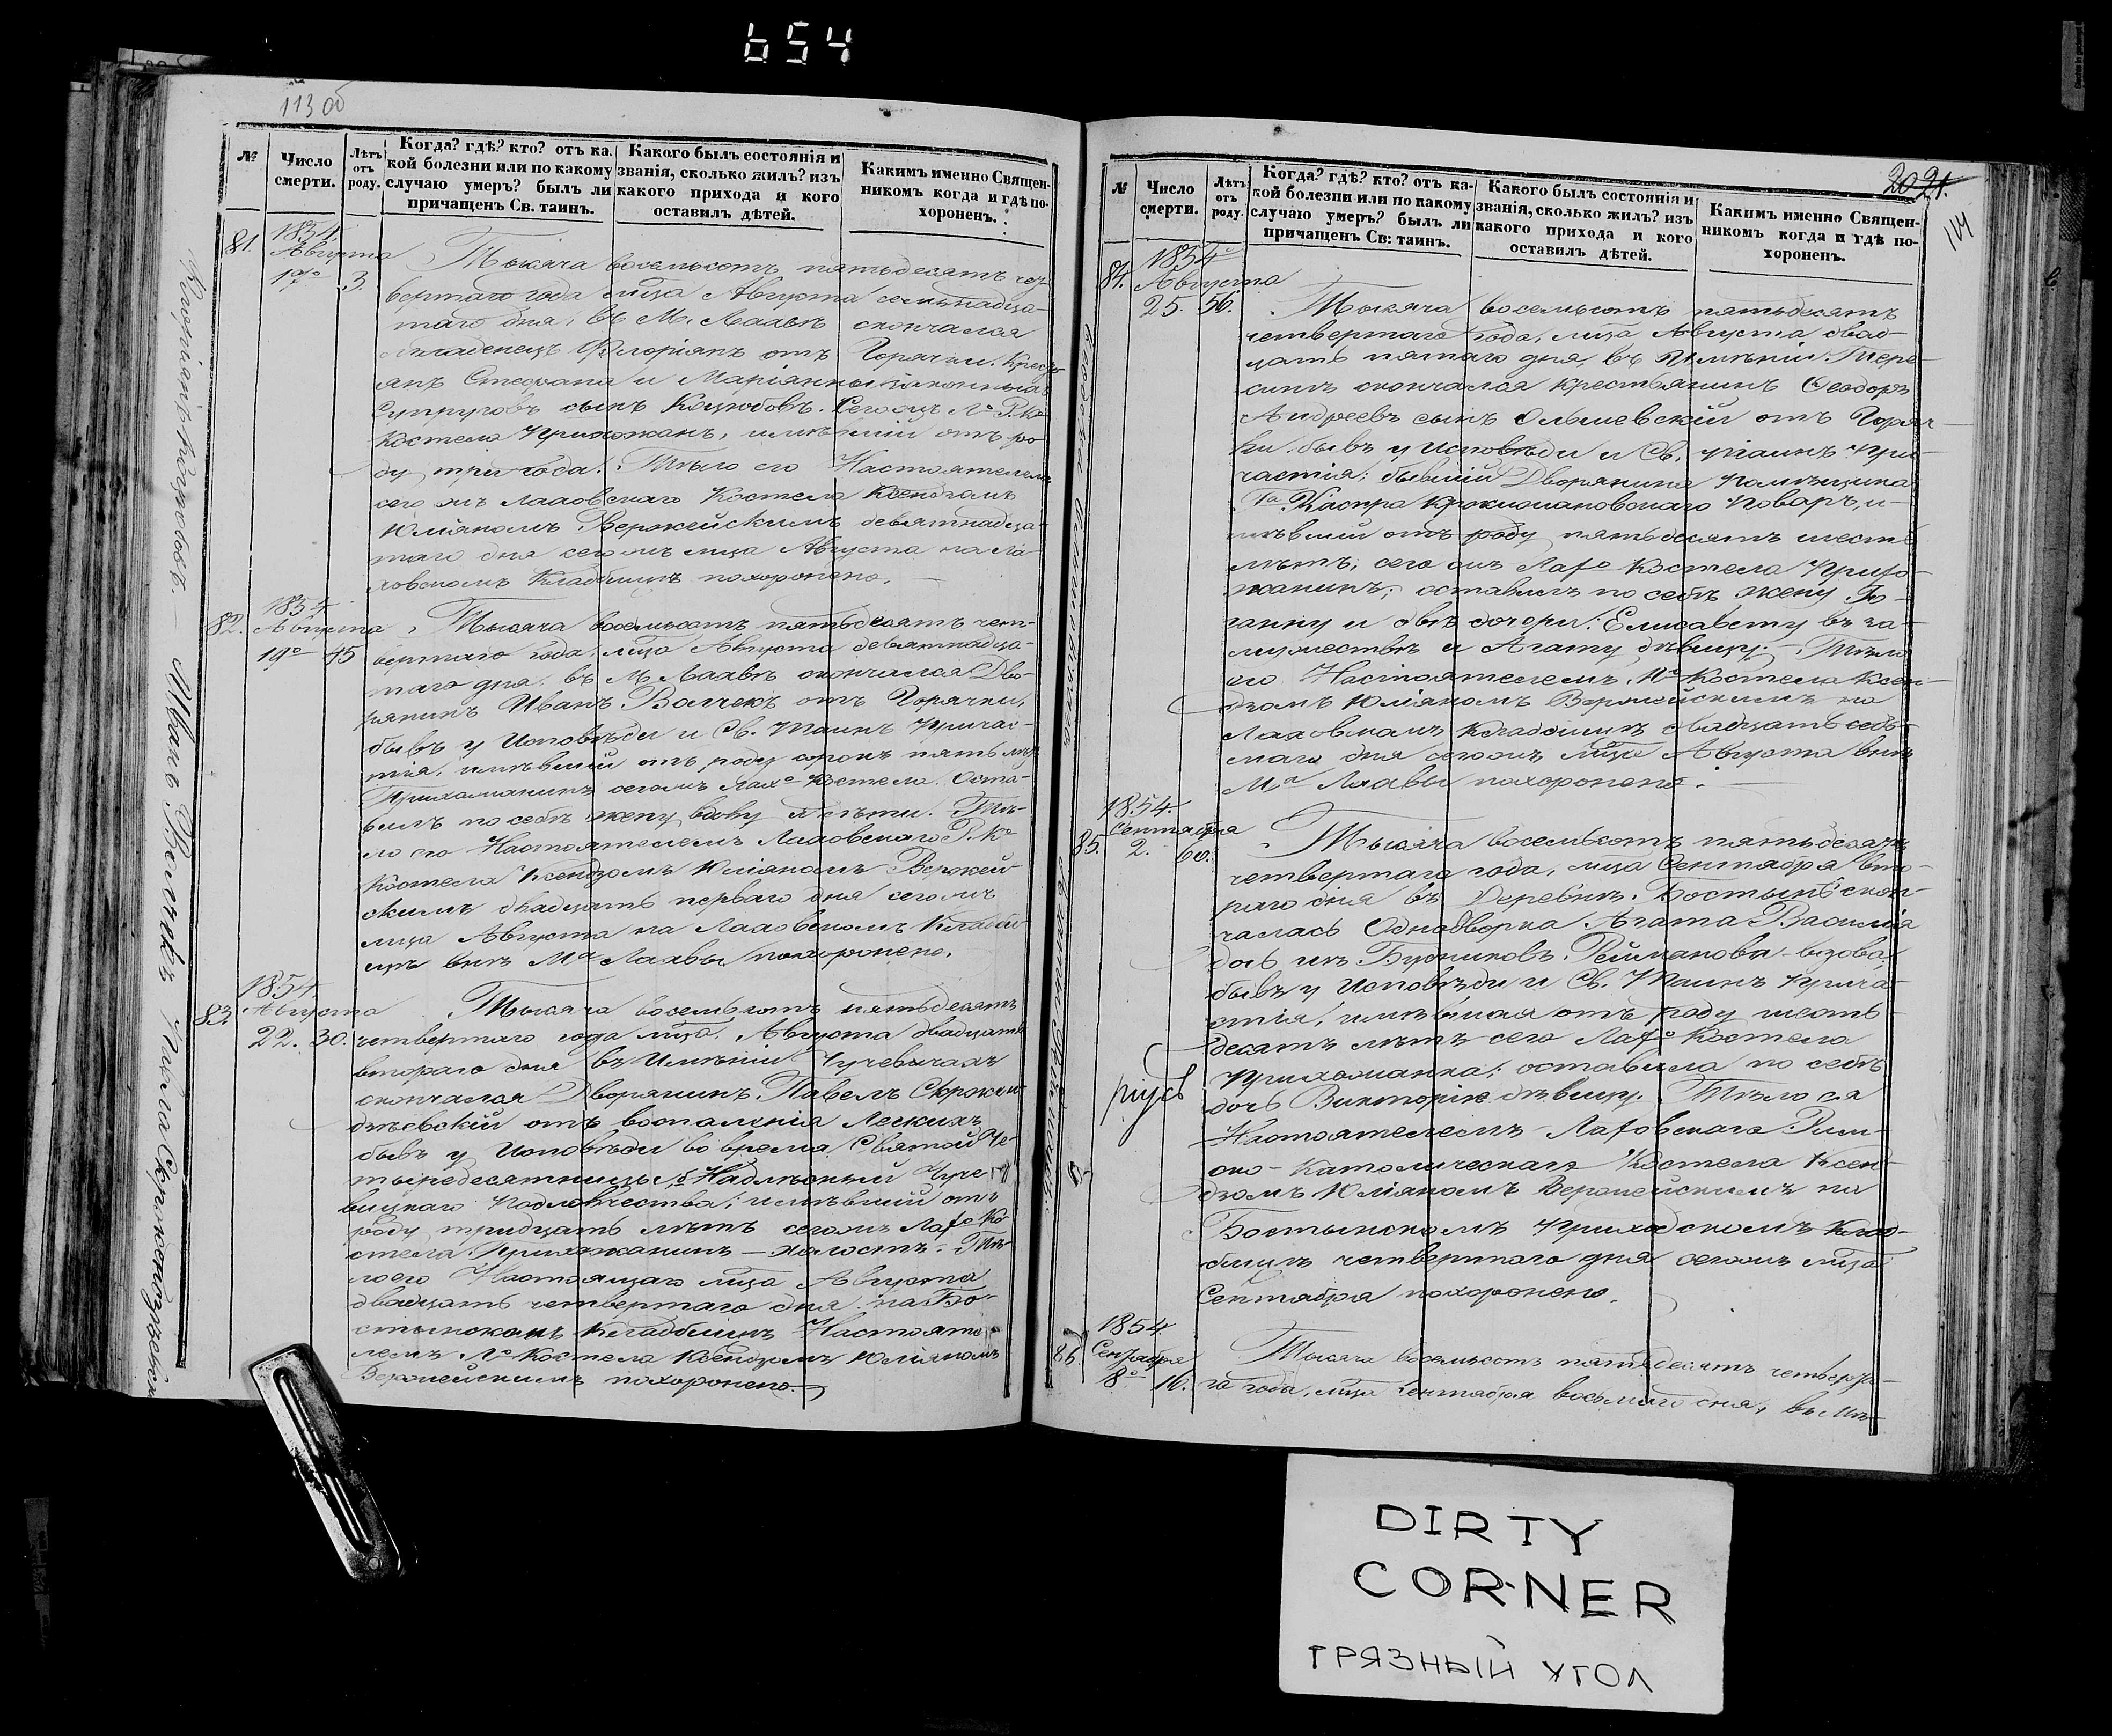 654
113 об
№
Число смерти.
Лѣтъ отъ роду.
Когда? гдѣ? кто? отъ ка-
кой болезни или по какому
случаю умеръ? былъ ли
причащенъ Св. таинъ.
Какого былъ состоянія и
званія, сколько жилъ? изъ
какого прихода и кого
оставилъ дѣтей.
Какимъ именно Священ-
никомъ когда и гдѣ по-
хороненъ.
81.
1854
Августа
17го 3.
Тысяча восемьсотъ пятьдесятъ чет-
вертаго года мца Августа семьнадца-
таго дня, въ М. Лахвѣ скончался
младенецъ Флоріянъ отъ Горячки. Кресть
янъ Стефана и Маріянны законныхъ
Супруговъ сынъ Сегожъ Ло Р. Ко
Костела Прихожанъ, имѣвшій отъ ро
ду три года. Тѣло его Настоятелемъ
сегожъ Лаховскаго Костела Ксендзомъ
Юліяномъ Вержейскимъ девятнадца-
таго дня сегожъ мца Августа на Ла-
ховскомъ Кладбищѣ похоронено.
82.
1854
Августа
19го 45
Тысяча восемьсотъ пятьдесятъ чет-
вертаго года, мца Августа девятнадца-
таго дня, въ М. Лахвѣ скончался Дво-
рянинъ Иванъ Волчекъ отъ Горячки,
бывъ у Исповѣди и Св. Таинъ Причас-
тія, имѣвшій отъ роду сорокъ пять лѣтъ
Прихожанинъ сегожъ Лахо Костела. Оста-
вилъ по себѣ жену вдову и дѣти. Тѣ-
ло его Настоятелемъ Лаховскаго Р. Ко
Костела Ксендзомъ Юліяномъ Вержей-
скимъ двадцать перваго дня сегожъ
мца Августа на Лаховскомъ Кладби-
щѣ внѣ Ма Лахвы похоронено.
83.
1854.
Августа
22. 30.
Тысяча восемьсотъ пятьдесятъ
четвертаго года мца Августа двадцать
втораго дня въ Имѣніи Чучевичахъ
скончался Дворянинъ Павелъ Скржен-
дзѣевскій отъ воспаленія Легкихъ
бывъ у Исповѣди во время Святой Че-
тыредесятницы, Надлѣсный Чуче-
вицкаго Надлѣсничества; имѣвшій отъ
роду тридцать лѣтъ сегожъ Лахо Ко-
стела Прихожанинъ — холостъ. Тѣ-
ло его Настоящаго мца Августа
двадцать четвертаго дня на Бо-
стынскомъ Кладбищѣ Настояте-
лемъ Ло Костела Ксендзомъ Юліяномъ
Вержейскимъ похоронено.
Иванъ Волчекъ
№
Число смерти.
Лѣтъ отъ роду.
Когда? гдѣ? кто? отъ ка-
кой болезни или по какому
случаю умеръ? былъ ли
причащенъ Св: таинъ.
Какого былъ состоянія и
званія, сколько жилъ? изъ
какого прихода и кого
оставилъ дѣтей.
Какимъ именно Священ-
никомъ когда и гдѣ по-
хороненъ.
2021.
114
84.
1854
Августа
25. 56.
Тысяча восемьсотъ пятьдесятъ
четвертаго года, мца Августа двад-
цать пятаго дня, въ Имѣніи
скончался крестьянинъ Ѳеодоръ
Андреевъ сынъ Ольшевскій отъ Горяч-
ки бывъ у Исповѣди и Св. Таинъ При-
частія; бывшій Дворянина Помѣщика
Поваръ, и-
мѣвшій отъ роду пятьдесятъ шесть
лѣтъ, сего жъ Лахо Костела Прихо-
жанинъ; оставилъ по себѣ жену
и двѣ дочери: Елисавету въ за-
мужествѣ и Агату дѣвицу. Тѣло
его Настоятелемъ Ло Костела Ксен-
дзомъ Юліяномъ Вержейскимъ на
Лаховскомъ Кладбищѣ двадцать седь-
маго дня сегожъ мца Августа внѣ
Ма Лахвы похоронено.
85.
1854.
Сентября
2. 60.
Тысяча восемьсотъ пятьдесятъ
четвертаго года, мца Сентября вто-
раго дня въ Деревнѣ Бостынѣ скон-
чалась Однодворка Агата Василія
дочь изъ Будниковъ, Рейманова вдова,
бывъ у Исповѣди и Св. Таинъ Прича-
стія, имѣвшая отъ роду шесть-
десятъ лѣтъ сего Лахо Костела
Прихожанка; оставила по себѣ
дочь Викторію дѣвицу. Тѣло ея
Настоятелемъ Лаховскаго Рим-
ско-Католическаго Костела Ксен-
дзомъ Юліяномъ Вержейскимъ на
Бостынскомъ Приходскомъ Клад-
бищѣ четвертаго дня сегожъ мца
Сентября похоронено.
86.
1854
Сентября
8го 16.
Тысяча восемьсотъ пятьдесятъ четверта-
го года, мца Сентября восьмаго дня, въ
DIRTY
CORNER
ГРЯЗНЫЙ УГОЛ